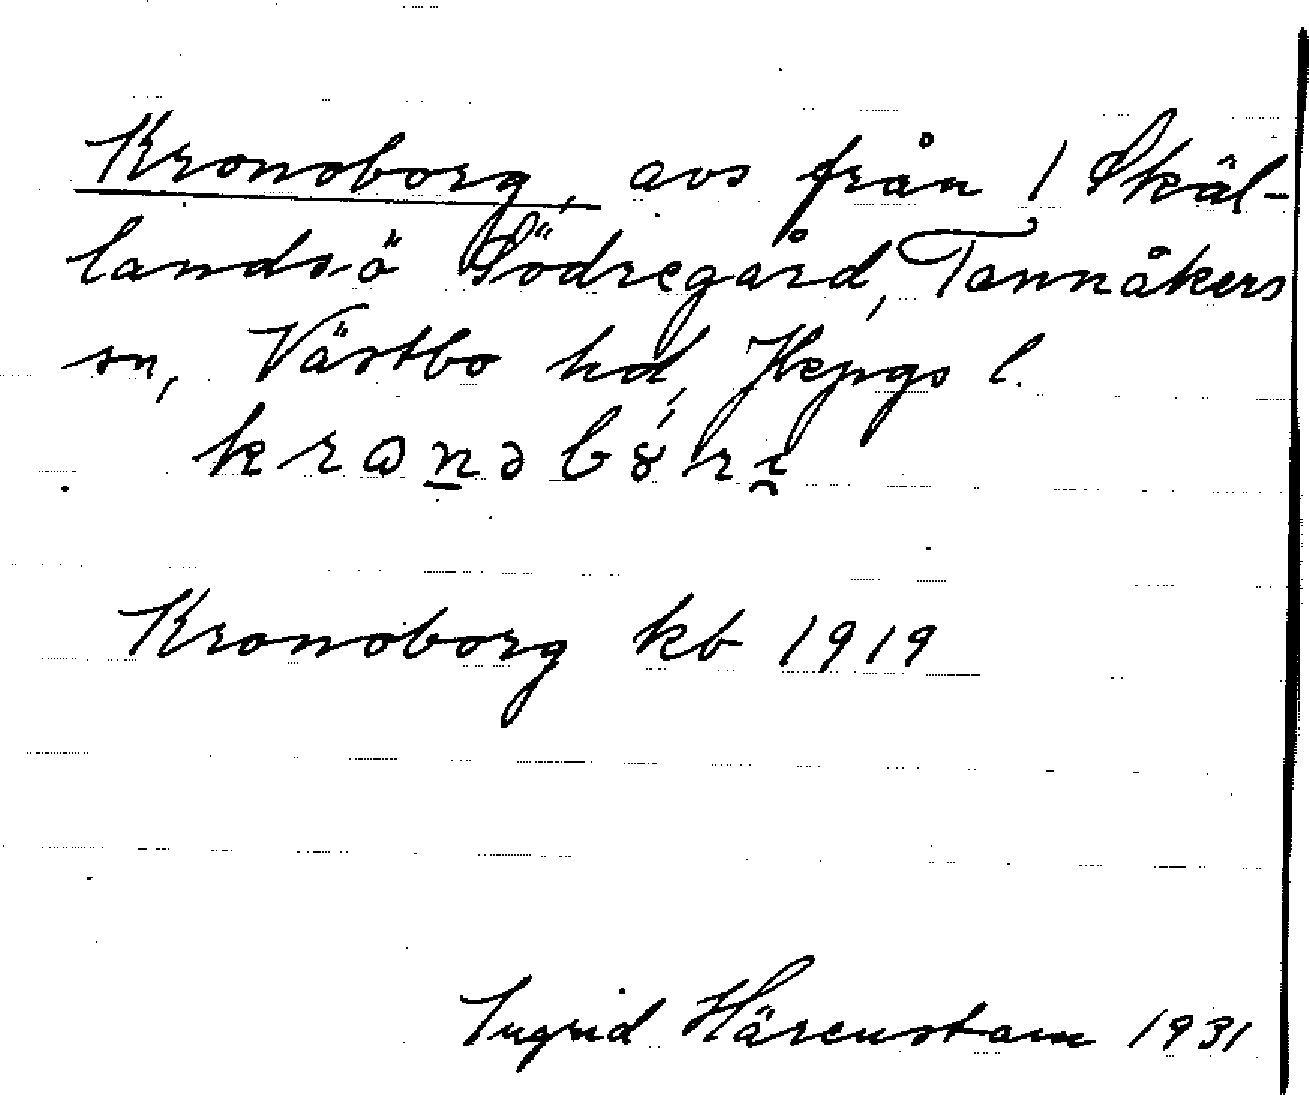 Kronoborg, avs från 1 Skäl-
landsö Södregård, Tannåkers
sn, Västbo hd,
Kronoborg kb 1919
Ingrid Härenstam 1931